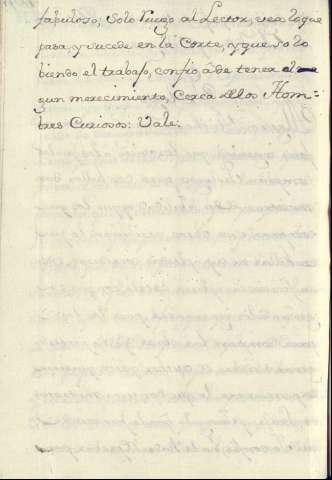 fabuloso, Solo ruego al Lector, vea lo que
pasa, y sucede en la Corte, y que solo
biendo el trabajo, confio á de tener al
gun merecimiento, Cerca de los Hom=
bres Curiosos: Vale: